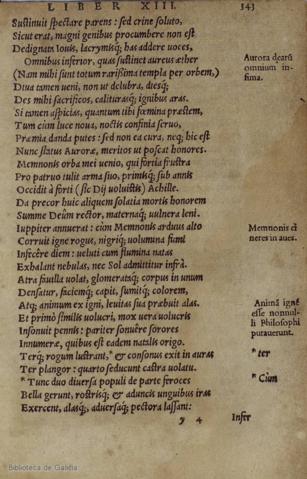 LIBER XIII. 343
Sustinuit spectare parens: sed crine soluto,
Sicut erat, magni genibus procumbere non est
Dedignata Iouis, lacrymisq; has addere voces,
Omnibus inferior, quas sustinet aureus æther
(Nam mihi sunt totum rarissima templa per orbem,)
Diua tamen ueni, non ut delubra, diesq;
Des mihi sacrificos, caliturasq; ignibus aras.
Si tamen aspicias, quantum tibi fœmina præstem,
Tum cùm luce noua, noctis confinia seruo,
Præmia danda putes: sed non ea cura, neq; hic est
Nunc status Auroræ, meritos ut poscat honores.
Memnonis orba mei uenio, qui fortia frustra
Pro patruo tulit arma suo, primisq; sub annis
Occidit à forti (sic Dij uoluistis) Achille.
Da precor huic aliquem solatia mortis honorem
Summe Deûm rector, maternaq; uulnera leni.
Iuppiter annuerat: cùm Memnonis arduus alto
Corruit igne rogus, nigriq; uolumina fumi
Infecêre diem: ueluti cùm flumina natas
Exhalant nebulas, nec Sol admittitur infrà.
Atra fauilla uolat, glomerataq; corpus in unum
Densatur, faciemq; capit, sumitq; colorem,
Atq; animum ex igni, leuitas sua præbuit alas.
Et primò similis uolucri, mox uera uolucris
Insonuit pennis: pariter sonuêre sorores
Innumeræ, quibus est eadem natalis origo.
Terq; rogum lustrant, * & consonus exit in auras
Ter plangor: quarto seducunt castra uolatu.
* Tunc duo diuersa populi de parte feroces
Bella gerunt, rostrisq; & aduncis unguibus iras
Exercent, alasq;, aduersaq; pectora lassant:
y 4 Infer
Aurora dearũ
omnium in-
fima.
Memnonis ci
neres in aues.
Animã ignē
esse nonnul-
li Philosophi
putauerunt.
* ter
* Cùm
Biblioteca de Galicia